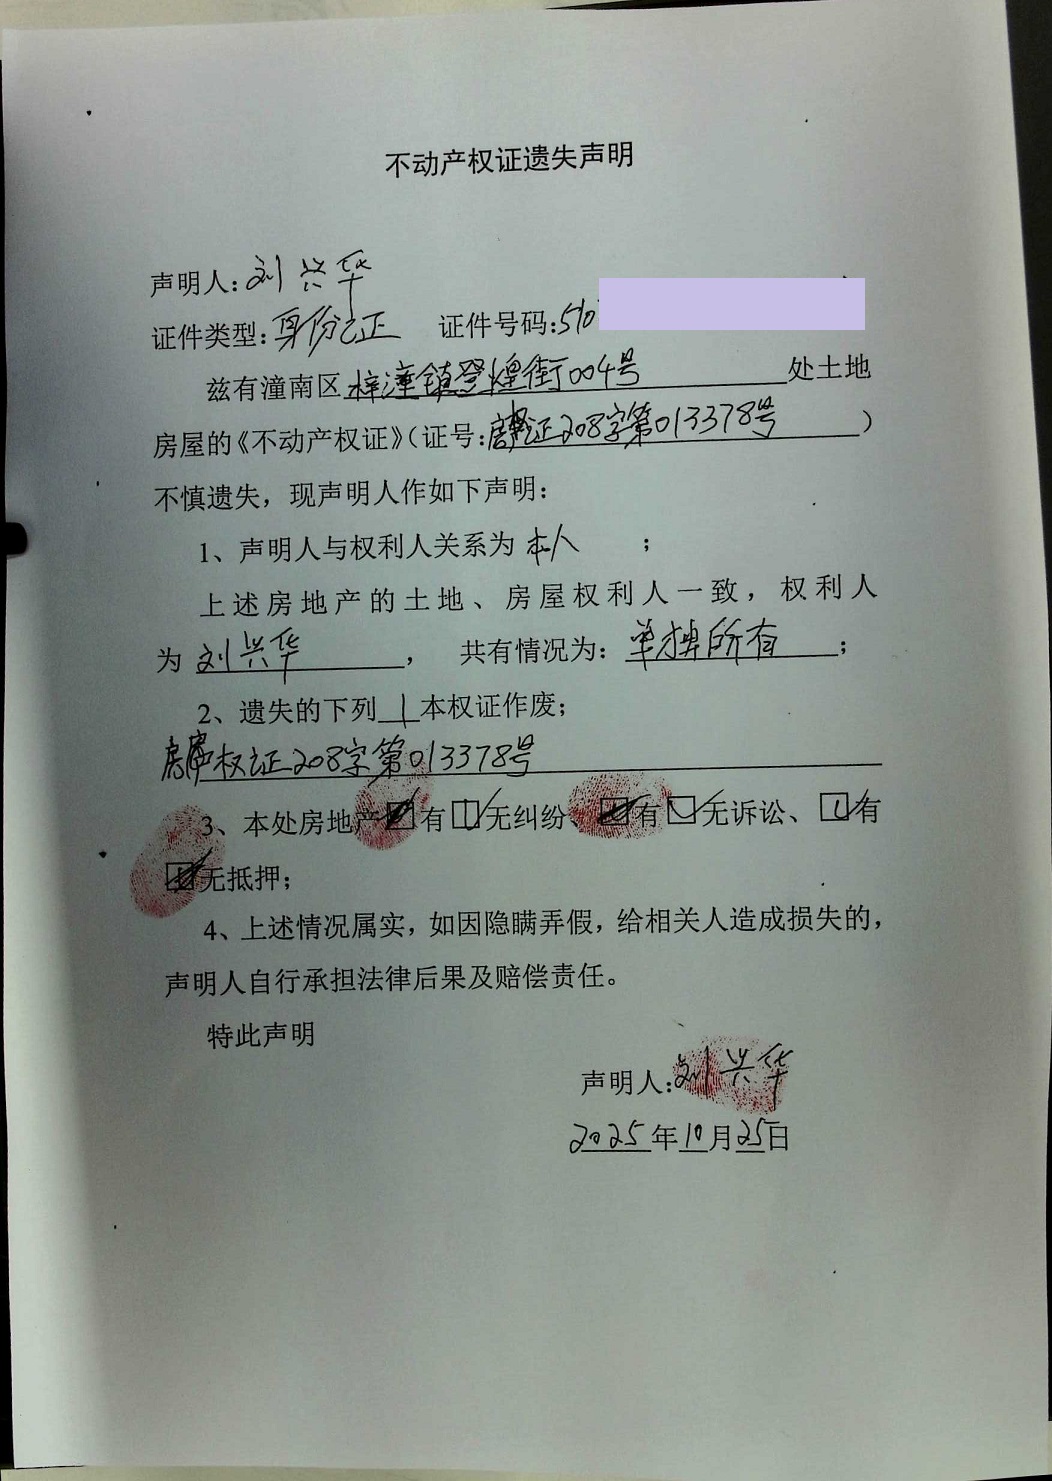 不动产权证遗失声明
声明人：刘兴华
证件类型：身份证 证件号码：510
兹有潼南区梓潼镇登煌街004号处土地
房屋的《不动产权证》（证号：房权证208字第013378号）
不慎遗失，现声明人作如下声明：
1、声明人与权利人关系为本人；
上述房地产的土地、房屋权利人一致，权利人
为刘兴华， 共有情况为：单独所有；
2、遗失的下列1本权证作废；
房权证208字第013378号
3、本处房地产☑有☑无纠纷、☑有☑无诉讼、☑有
☑无抵押；
4、上述情况属实，如因隐瞒弄假，给相关人造成损失的，
声明人自行承担法律后果及赔偿责任。
特此声明
声明人：刘兴华
2025年10月25日